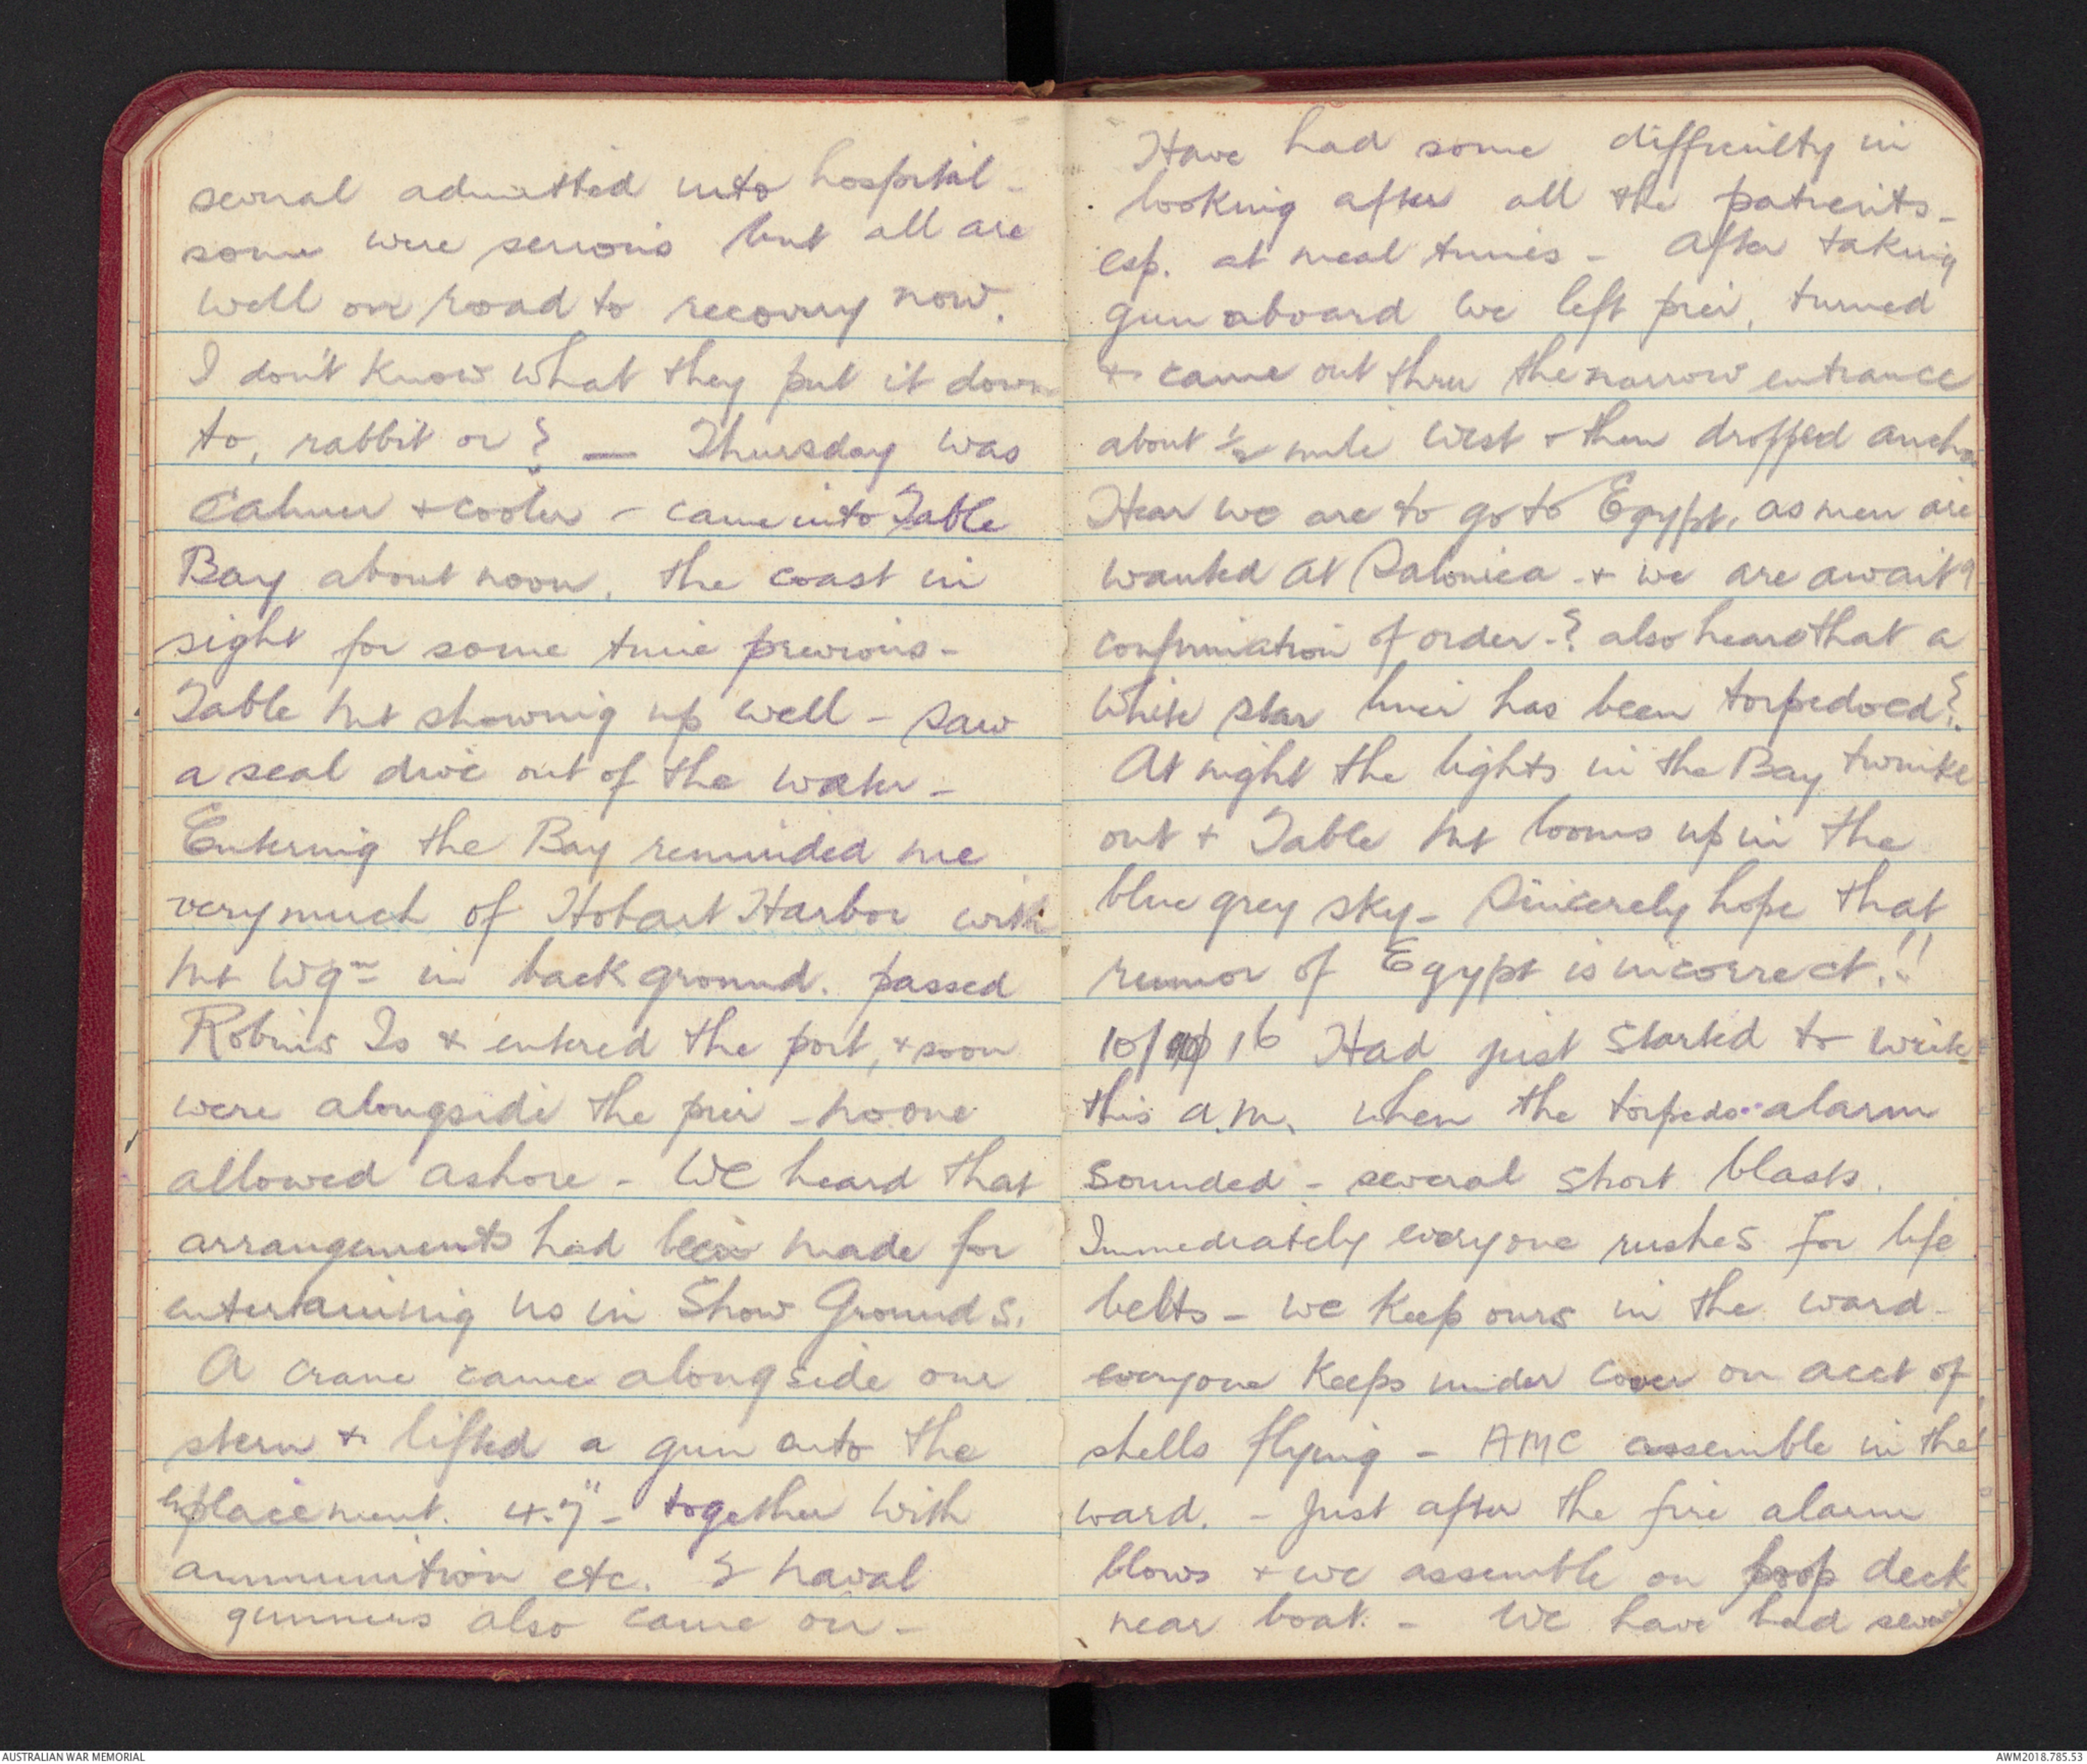 several admitted into hospital -
some were serious but all are
well on road to recovery now.
I don't know what they put it down
to, rabbit or ? — Thursday was
calmer & cooler - came into Table
Bay about noon, the coast in
sight for some time previous -
Table Mt showing up well - saw
a seal dive out of the water -
Entering the Bay reminded me
very much of Hobart Harbor with
Mt Wgn in back ground. passed
Robins Is & entered the port, & soon
were alongside the pier - no one
allowed ashore - We heard that
arrangements had been made for
entertaining us in Show Grounds.
A crane came alongside our
stern & lifted a gun onto the
4.7" - together with
ammunition etc. 2 naval
gunners also came on -
Have had some difficulty in
looking after all the patients -
esp. at meal times - After taking
gun aboard we left pier, turned
& came out thru the narrow entrance
about ½ mile West & then dropped anchor
Hear we are to go to Egypt, as men are
wanted at Salonica & we are awaitg
confirmation of order - ? also heard that a
White Star liner has been torpedoed?.
At night the lights in the Bay twinkle
out & Table Mt looms up in the
blue grey sky - Sincerely hope that
rumor of Egypt is incorrect.!!
10/ 16 Had just started to write
this a.m. when the torpedo alarm
sounded - several short blasts.
Immediately everyone rushes for life
belts - we keep ours in the ward -
everyone keeps under cover on acct of
shells flying - AMC assemble in the
ward. - Just after the fire alarm
blows & we assemble on poop deck
near boat. - We have had several
AUSTRALIAN WAR MEMORIAL
AWM2018.785.53